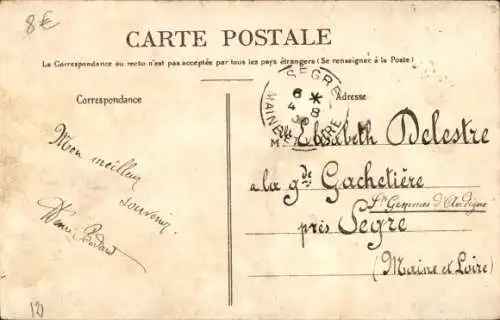 8€
CARTE POSTALE
La Correspondance au recto n'est pas acceptée par tous les pays étrangers (Se renseigner à la Poste)
Correspondance
Adresse
SEGRÉ
6 *
4
08
MAINE ET LOIRE
Mon meilleur
souvenir
Henri
Mlle Elisabeth Delestre
a la gde Gachetière
Ste Gemmes d'Andigné
près Segré
(Maine et Loire)
12